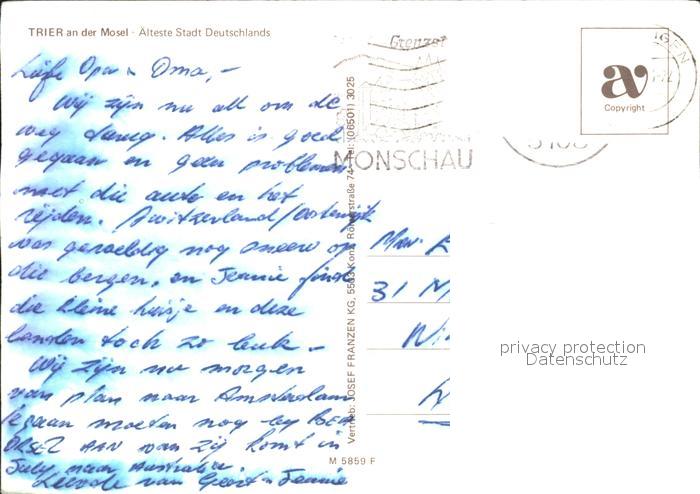 TRIER an der Mosel - Älteste Stadt Deutschlands
Liefe Opa & Oma,-
Wij zijn nu al om de
weg terug. Alles is goed
gegaan en geen problemen
met die auto en het
rijden. Switzerland/Oostenrijk
was geweldig nog sneeuw op
die bergen, en Jeanie
die kleine huisje en deze
landen toch zo leuk -
Wij zijn nu morgen
van plan naar Amsterdam
gaan moeten nog by
AAN van zij komt in
July naar Australia.
Liefde van Geert & Jeanie
Vertrieb: JOSEF FRANZEN KG, 5503 Konz, Römerstraße 74 Tel. (06501) 3025
M 5859 F
MONSCHAU
av
Copyright
31
privacy protection
Datenschutz